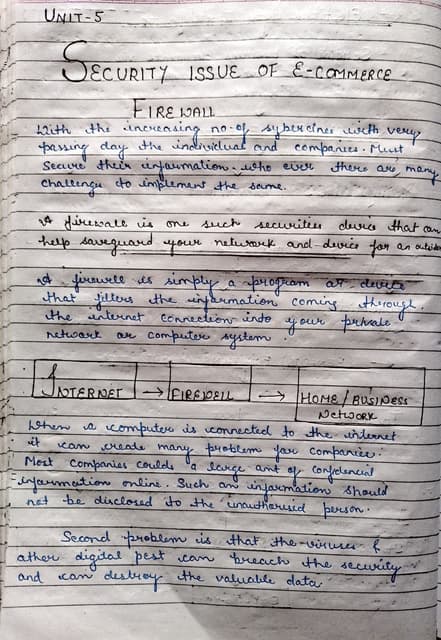 UNIT-5
SECURITY ISSUE OF E-COMMERCE
FIREWALL
With the increasing no-of sybercines with very
passing day the individual and companies. Must
secure their information. who ever there are many
challenge to implement the same.
A firewall is one such securities device that can
help saveguard your network and device for an outside
A firewell is simply a program or device
that filters the information coming through
the internet connection into your private
network or computer system
INTERNET → FIREWELL → HOME/BUSINESS
NETWORK
When a computer is connected to the internet
it can create many problem for companies.
Most companies coulds a large amt of confdencial
information online. Such an information should
not be disclosed to the unauthorised person.
Second problem is that the viruses &
other digital pest can breach the security
and can destroy the valuable data